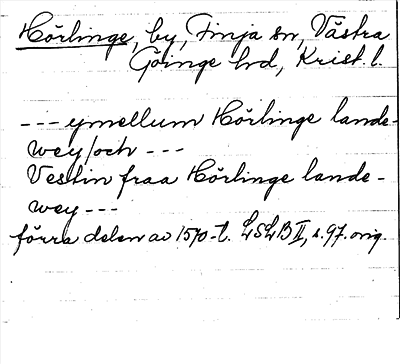 Hörlinge, by, Finja sn, Västra
Göinge hd, Krist. l.
--- ymellum Hörlinge lande-
wey/och ---
Vestin fraa Hörlinge lande-
wey ---
förra delen av 1570-t. LSLB II, s. 97. orig.